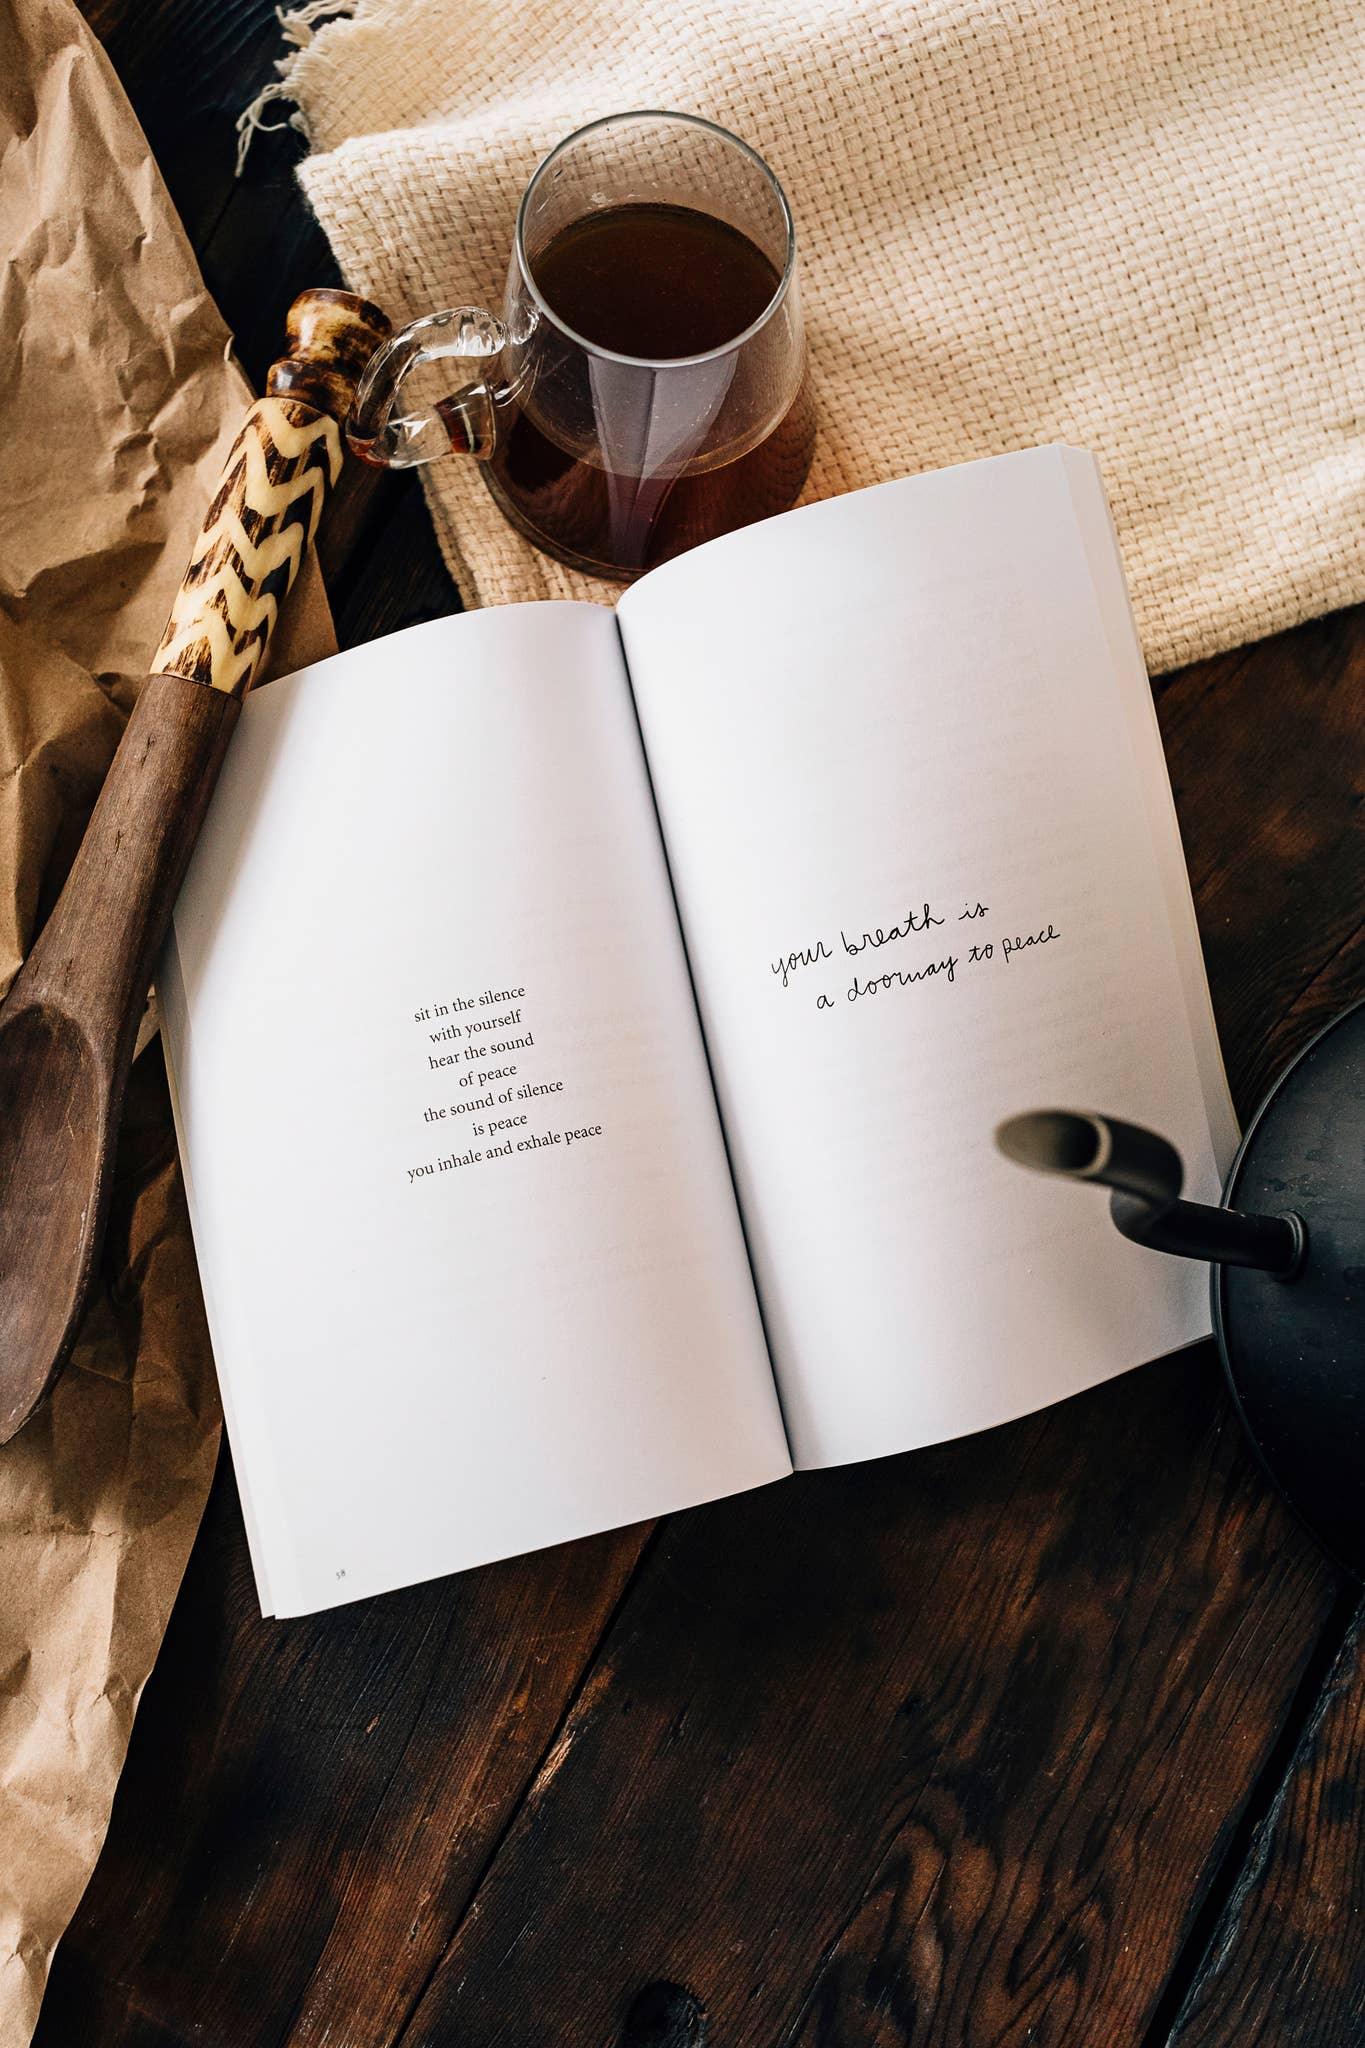 sit in the silence
with yourself
hear the sound
of peace
the sound of silence
is peace
you inhale and exhale peace
58
your breath is
a doorway to peace